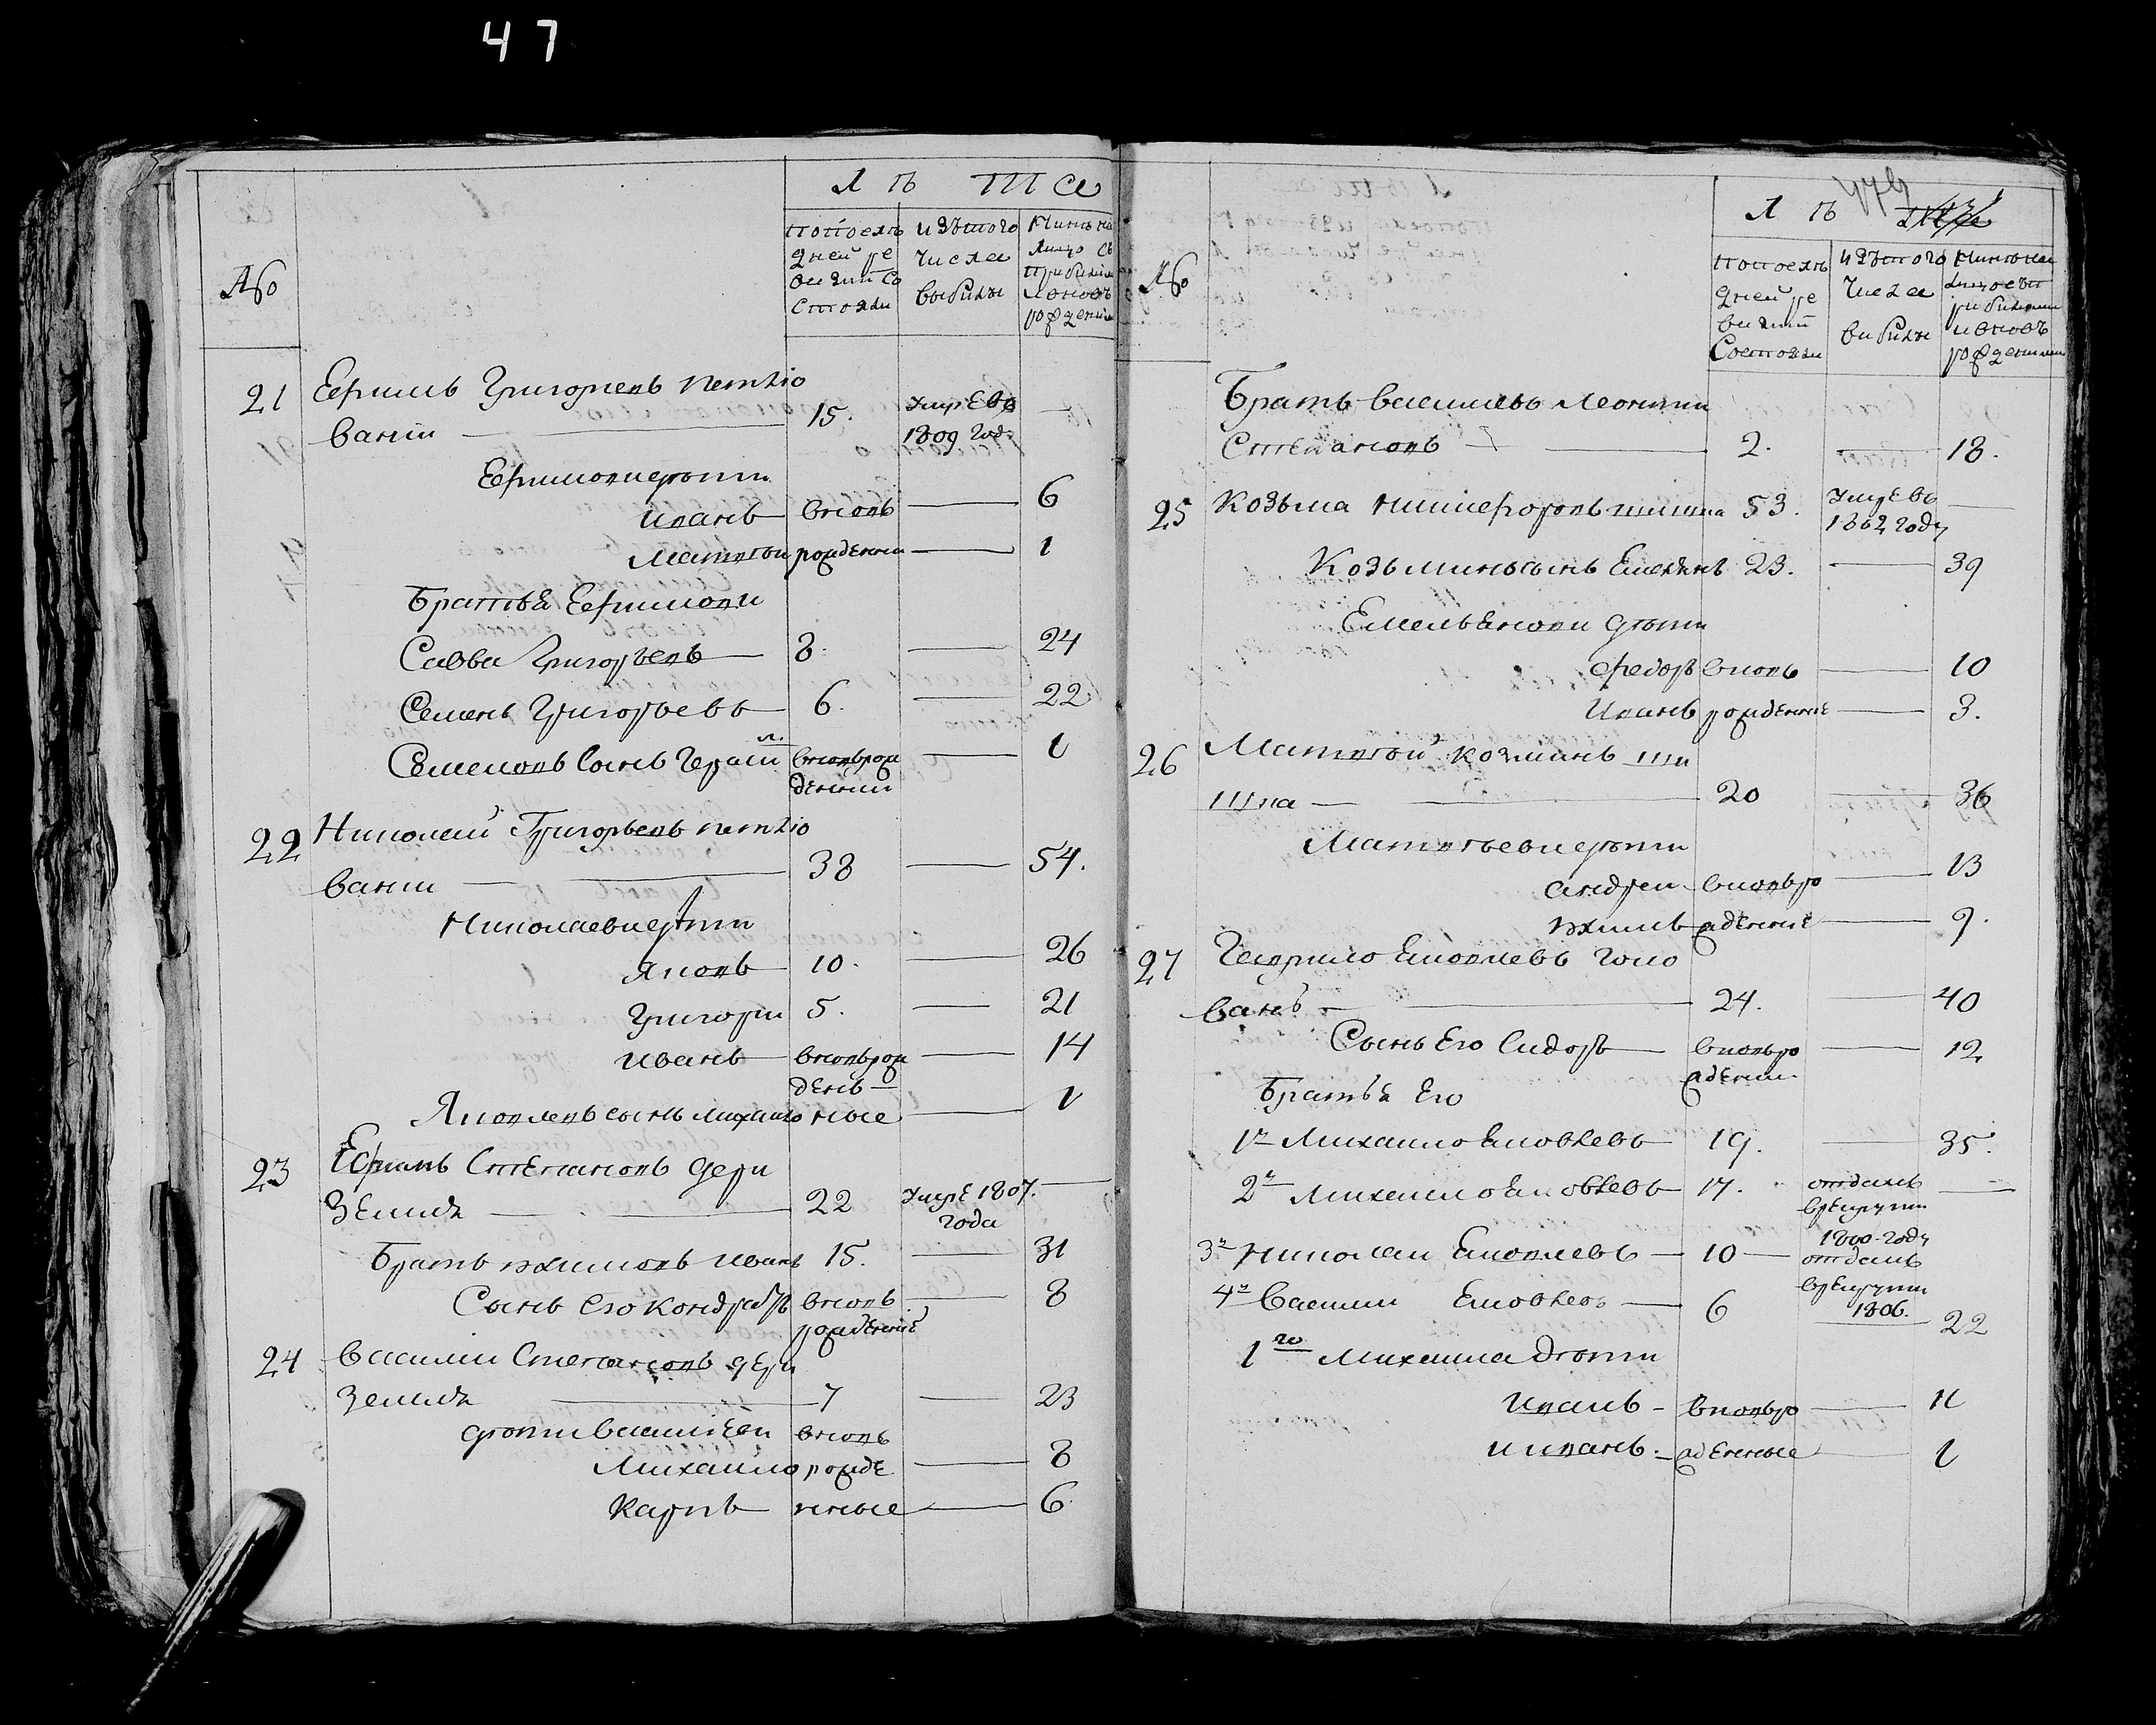 47
Лѣта
№
попослѣ
дней ре
визіи со
стояли
изътого
числа
выбыли
Нынѣ на
лицо съ
прибылы
и вновь
рожденны
21 Ефимъ Григорьевъ петлѣо
ваній 15. умре въ
1809 год.
Ефимовы дѣти
иванъ вновь 6
Матвѣй рожденны 1
Братья Ефимовы
Савва Григорьевъ 8. 24
Семенъ Григорьевъ 6. 22
Семеновъ сынъ Герасим вновьрож 1
денный
22 Николай Григорьевъ петлѣо
ваный 38 54.
Николаевы дѣти
Яковъ 10. 26
Григори 5. 21
иванъ вновьрож 14
ден
Яковлевъ сынъ михаило ные 1
23 Ефимъ Степановъ дери
земля 22 умре 1807.
года
Братъ ефимовъ иванъ 15. 31
Сынъ его кондратъ вновь 8
рожденные
24 василий Степановъ дери
земля 7 23
дѣти василѣви вновь
Михаило рожде 8
карпъ нные 6
Лѣта
№
попослѣ
дней ре
визіи
Состояли
изътого
числа
выбыли
Нынѣ на
лицо съ п
рибылыми
и вновь
рожденными
Братъ василиевъ леонтий
Степановъ 2. 18.
25 Козьма никифоровъ шишка 53. умре въ
1802 году
Козьминъ сынъ Емелянъ 23. 39
Емельяновы дѣти
федоръ вновь 10
Иванъ рожденные 3.
26 Матвѣй козминъ ши
шка 20 36
Матвѣевы дѣти
андреи вновьро 13
жденные 9.
27 Гаврило яковлевъ голо
вань 24. 40
Сынъ Его Сидоръ вновьро 12
жденны
Братья Его
1й Михаило яковлевъ 19. 35.
2й михаило яковлевъ 17. отданъ
врекруты
1800 году
3й николаи яковлевъ 10 отданъ
врекруты
1806.
4й василии яковлевъ 6 22
1го михаила дѣти
иванъ вновьро 11
и иванъ жденные 1